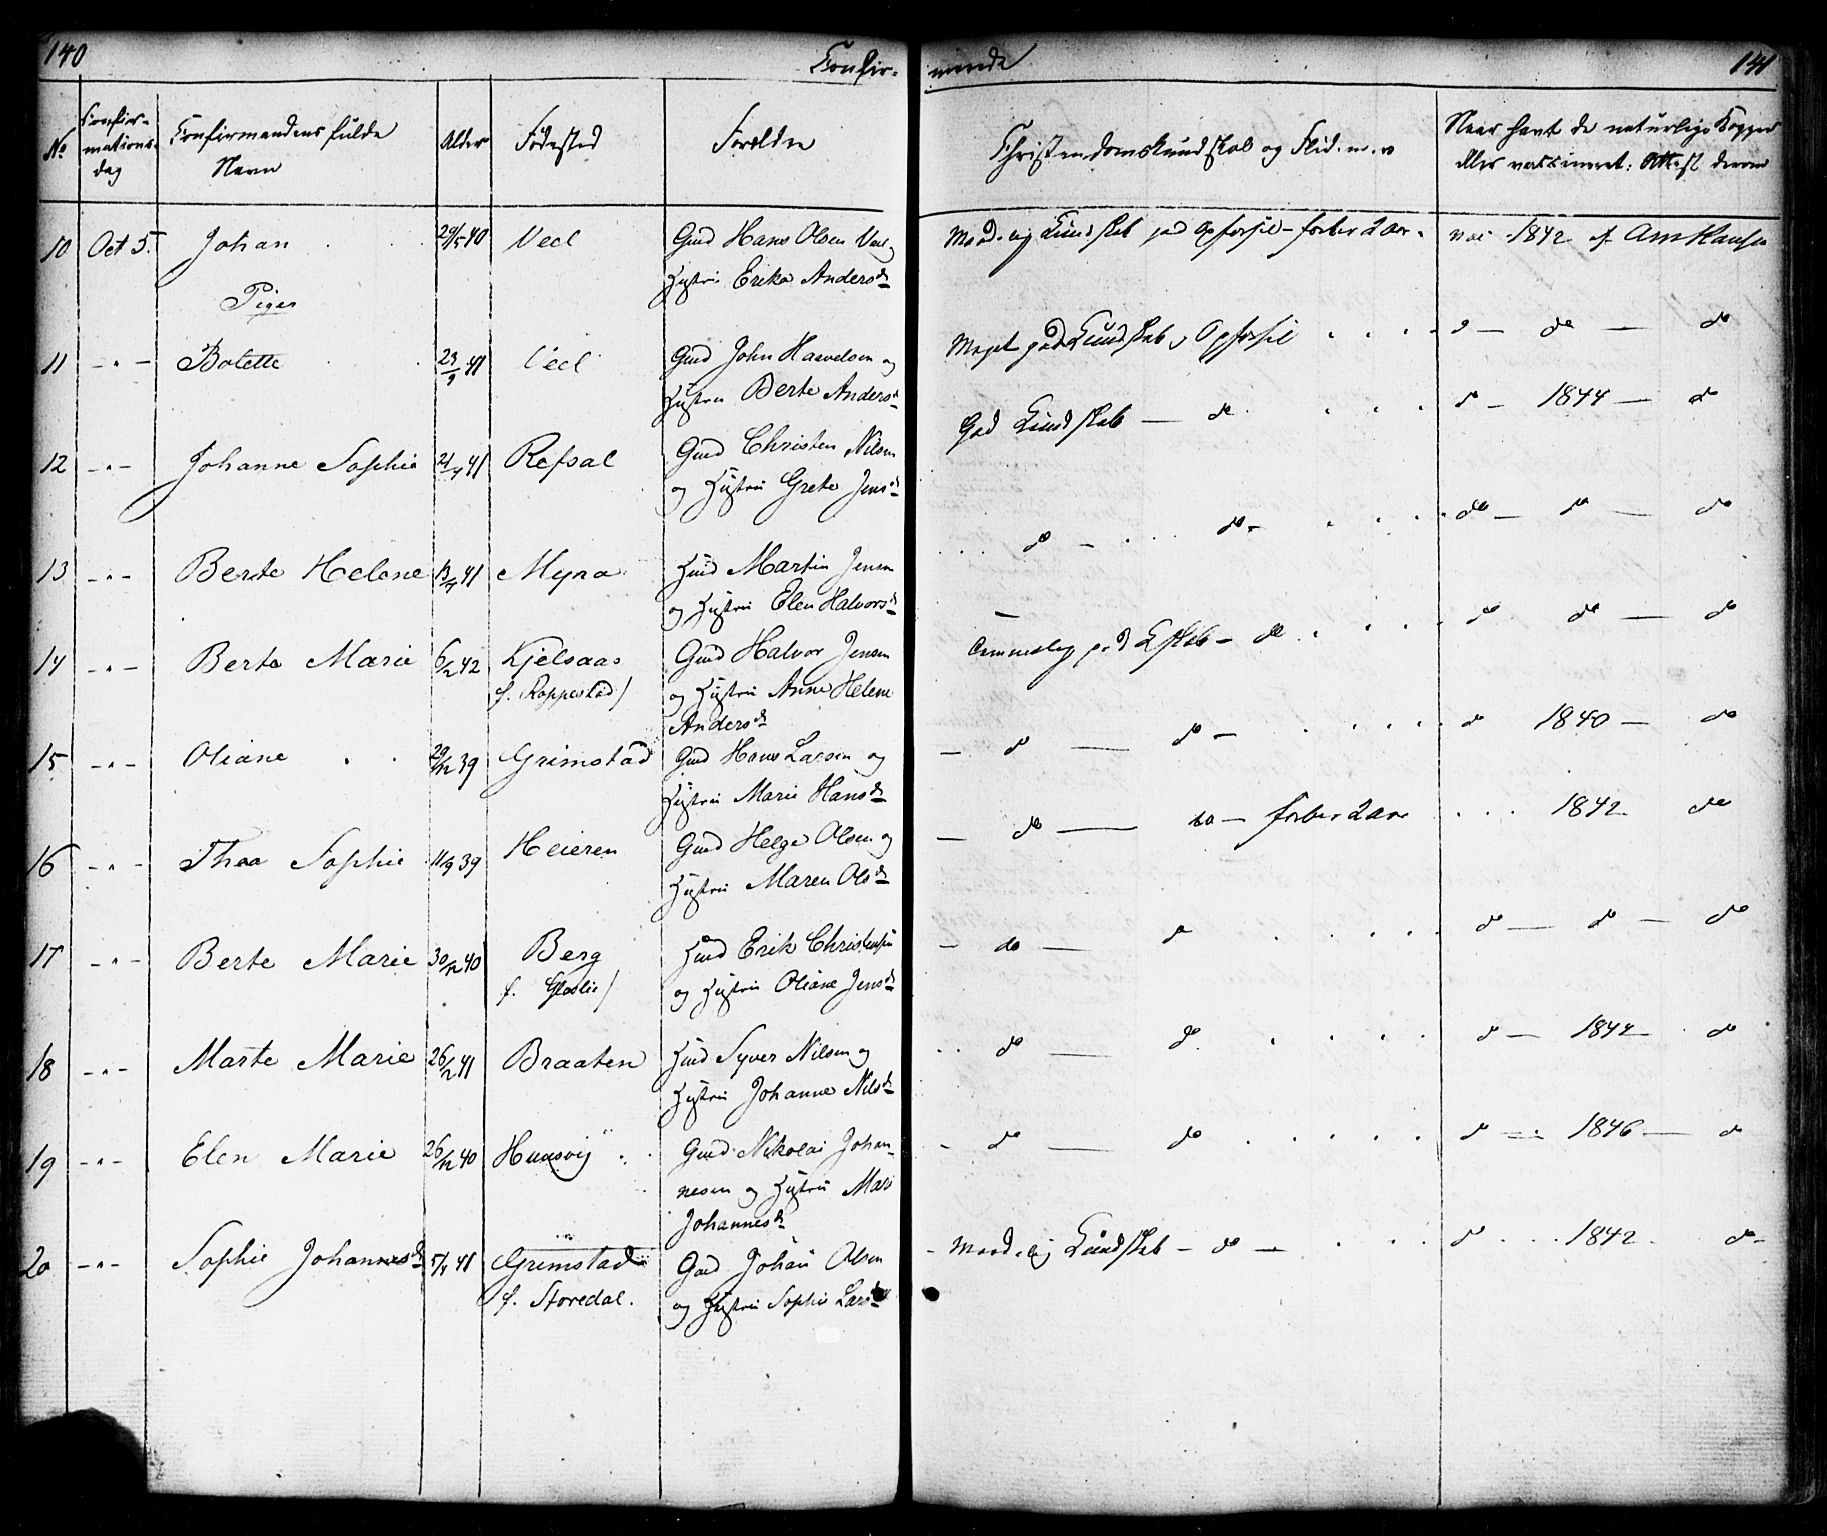 140
Confir-
No
Confir-
mations-
dag
Confirmandens fulde
Navn
Alder
Fødested
Forældre
10 Oct 5. Johan 29/5 40 Veel Gmd Hans Olsen Veel
Hustru Erika Andersd
Piger
11 - " - Bolette 23/9 41 Veel Gmd John Haavelsen og
Hustru Berte Andersd
12 - " - Johanne Sophie 21/4 41 Refsal Gmd Christen Nilsen
og Hustru Grete Jensd
13 - " - Berte Helene 13/4 41 Myra Huusmd Martin Jensen
og Hustru Elen Halvorsd
14 - " - Berte Marie 6/2 42 Kjelsaas Gmd Halvor Jensen
f. Roppestad) og Hustru Anne Helene
Andersd
15 - " - Oliane 29/12 39 Grimstad Gmd Hans Larsen og
Hustru Marie Hansd
16 - " - Thea Sophie 11/9 39 Heieren Gmd Helge Olsen og
Hustru Maren Olsd
17 - " - Berte Marie 30/12 40 Berg Hmd Erik Christensen
f. Glaslie) og Hustru Oliane Jensd
18 - " - Marte Marie 26/2 41 Braaten Hmd Syver Nilsen og
Hustru Johanne Nilsd
19 - " - Elen Marie 26/12 40 Huusvig Gmd Nikolai Johan-
nesen og Hustru Mari
Johannesd
20 - " - Sophie Johannesd 5/4 41 Grimstad Gmd Johan Olsen
f. Storedal. og Hustru Sophie Larsd
mande
141
Christendomskundskab og Flid. m. v
Naar havt de naturlige Kopper
eller vaccineret: Attest derom
Maadelig Kundskab god Opførsel - forber 2 Aar. vac 1842 af Am Hansen
Meget god Kundskab, Opførsel do - do - do
God Kundskab - do do - 1844 - do
do - do - do - do - do
Temmelig god Kskab - do do do - do
- do - do - do 1840 - do
- do - do - forber 2 Aar 1842 do
- do - do do - do - do
do - do do - 1842 - do
- do - do do - 1846 - do
- Maadelig Kundskab - do - do 1842 do -